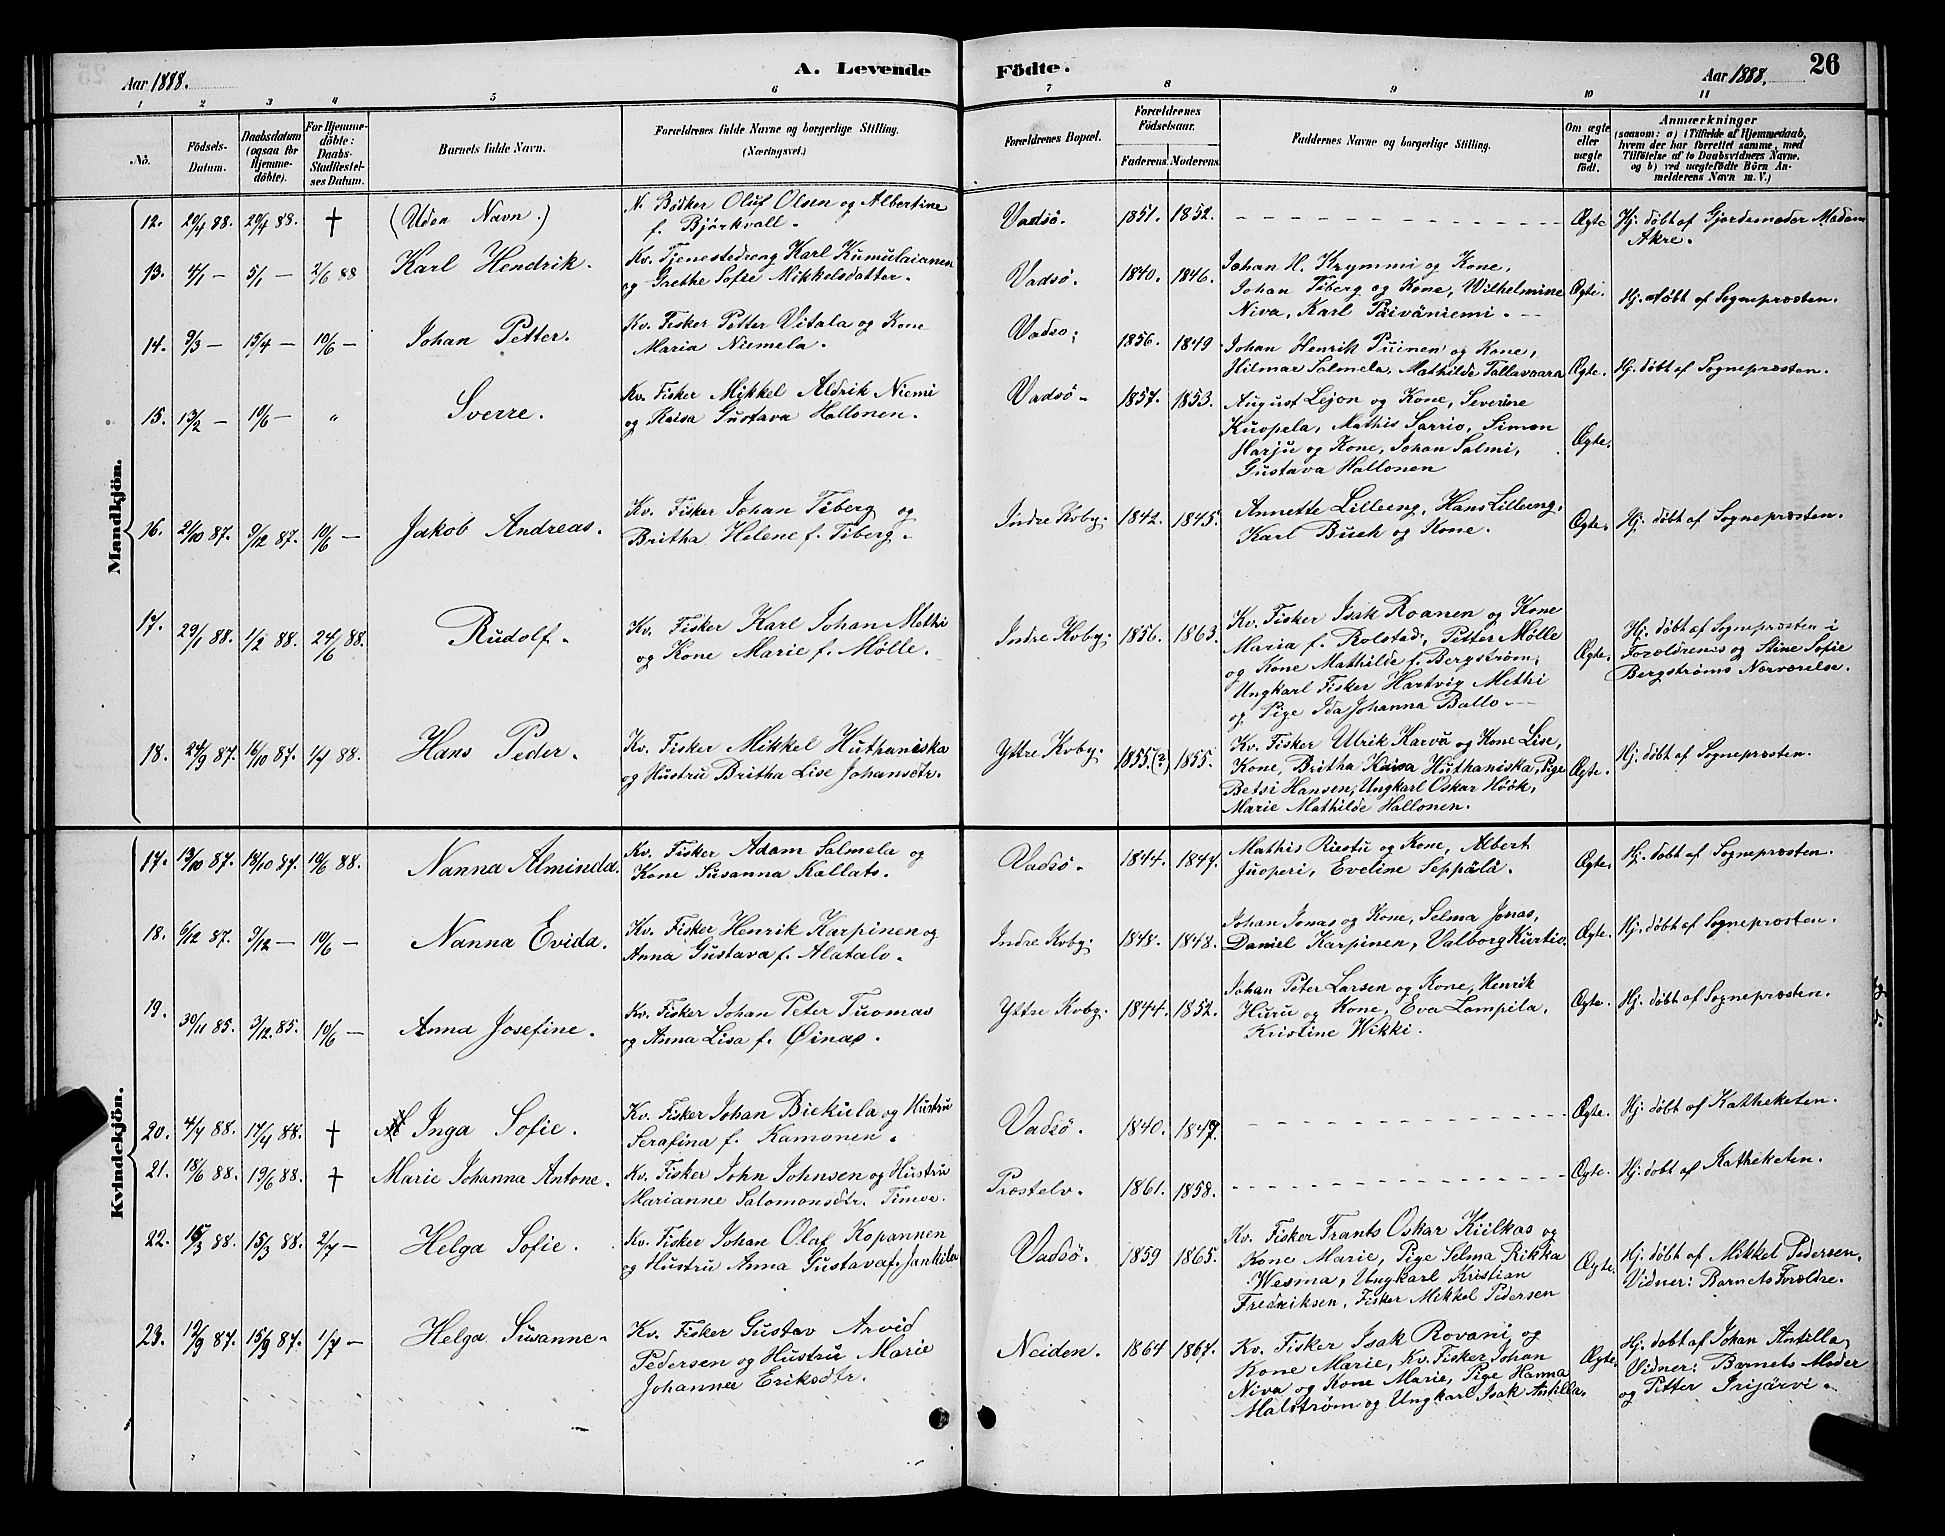 Aar 1888.
A. Levende Födte.
Aar 1888.
26
1 2 3 4 5 6 7 8 9 10 11
No.
Födsels-Datum.
Daabsdatum (ogsaa for Hjemme-döbte).
For Hjemme-döbte: Daabs-Stadfæstel-ses Datum.
Barnets fulde Navn.
Forældrenes fulde Navne og borgerlige Stilling.
(Næringsvei.)
Forældrenes Bopæl.
Forældrenes Födselsaar.
Faderens. Moderens.
Faddernes Navne og borgerlige Stilling.
Om ægte eller uægte født.
Anmærkninger
(saasom: a) i Tilfælde af Hjemmedaab,
hvem der har forrettet samme, med
Tilföielse af to Daabsvidners Navne.
og b) ved uægtefödte Börn An-
melderens Navn m. V.)
Mandkjön.
12. 29/4 88. 29/4 88. † (Uden Navn.) N. Bödker Oluf Olsen og Albertine
f. Björkvall. Vadsö. 1851. 1852. Ægte Hj. döbt af Gjordemoder Madam
Akre.
13. 4/1 — 5/1 — 2/6 88 Karl Hendrik. Kv. Tjenestedreng Karl Kumulainen
og Grethe Sofie Mikkelsdatter. Vadsö. 1840. 1846. Johan H. Krymmi og Kone,
Johan Tiberg og Kone, Wilhelmine
Niva, Karl Päiväniemi. Ægte. Hj. döbt af Sognepræsten.
14. 9/3 — 15/4 — 10/6 — Johan Petter. Kv. Fisker Petter Vitala og Kone
Maria Niemela. Vadsö. 1856. 1849 Johan Henrik Puinen og Kone,
Hilmar Salmela, Mathilde Tallavaara Ægte. Hj. döbt af Sognepræsten.
15. 13/2 — 10/6 — " Sverre. Kv. Fisker Mikkel Aldrik Niemi
og Kaisa Gustava Hallonen. Vadsö. 1857. 1853. August Lejon og Kone, Severine
Kuopela, Mathis Sarrio, Simon
Harju og Kone, Johan Salmi,
Gustava Hallonen Ægte.
16. 21/10 87. 9/12 87. 10/6 — Jakob Andreas. Kv. Fisker Johan Tiberg og
Britha Helene f. Tiberg. Indre Kvby. 1842. 1845. Annette Lilleeng, Hans Lilleeng,
Karl Busch og Kone. Ægte. Hj. döbt af Sognepræsten.
17. 29/1 88. 1/2 88. 24/6 88. Rudolf. Kv. Fisker Karl Johan Methi
og Kone Marie f. Mölle. Indre Kvby. 1856. 1863. Kv. Fisker Isak Roanen og Kone
Maria f. Rolstad, Petter Mölle
og Kone Mathilde f. Bergström,
Ungkarl Fisker Hartvig Methi
og Pige Ida Johanna Ballo. Ægte. Hj. döbt af Sognepræsten i
Forældrenes og Stine Sofie
Bergströms Nærværelse.
18. 24/9 87. 16/10 87. 1/7 88. Hans Peder. Kv. Fisker Mikkel Huthaniska
og Hustru Britha Lise Johansdtr. Yttre Kvby. 1855(?) 1855. Kv. Fisker Ulrik Karvu og Kone Lise,
Kone, Britha Kaisa Huthaniska, Pige
Betsi Hansen, Ungkarl Oskar Höök,
Marie Mathilde Hallonen. Ægte. Hj. döbt af Sognepræsten.
Kvindekjön.
17. 13/10 87. 18/10 87. 10/6 88. Nanna Alminda. Kv. Fisker Adam Salmela og
Kone Susanna Kallats. Vadsö. 1844. 1847. Mathis Riestu og Kone, Albert
Juoperi, Eveline Seppälä. Ægte. Hj. döbt af Sognepræsten.
18. 6/12 87. 9/12 — 10/6 — Nanna Evida. Kv. Fisker Henrik Karpinen og
Anna Gustava f. Alatalo. Indre Kvby. 1848. 1848. Johan Jonas og Kone, Selma Jonas,
Daniel Karpinen, Valborg Kurtio. Ægte. Hj. döbt af Sognepræsten.
19. 30/11 85. 3/12. 85. 10/6 — Anna Josefine. Kv. Fisker Johan Peter Tuomas
og Anna Lisa f. Öinas. Yttre Kvby. 1844. 1852. Johan Peter Larsen og Kone, Henrik
Huru og Kone, Eva Lampila,
Kristine Wikki. Ægte. Hj. döbt af Sognepræsten.
20. 4/4 88. 17/4 88. † Inga Sofie. Kv. Fisker Johan Biekula og Hustru
Serafina f. Kamonen. Vadsö. 1840. 1847. Ægte. Hj. döbt af Katheketen.
21. 18/6 88. 19/6 88. † Marie Johanna Antone. Kv. Fisker John Johnsen og Hustru
Marianne Salomonsdtr. Præstelv. 1861. 1858. Ægte. Hj. döbt af Katheketen.
22. 15/3 88. 15/3 88. 2/7 — Helga Sofie. Kv. Fisker Johan Olaf Kopannen
og Hustru Anna Gustava f. Jankila Vadsö. 1859 1865. Kv. Fisker Frants Oskar Kiilkas og
Kone Marie, Pige Selma Rikka
Wesma, Ungkarl Kristian
Fredriksen, Fisker Mikkel Pedersen Ægte. Hj. döbt af Mikkel Pedersen.
Vidner: Barnets Forældre.
23. 12/9 87. 15/9 87. 1/7 — Helga Susanne. Kv. Fisker Gustav Arvid
Pedersen og Hustru Marie
Johanna Eriksdtr. Neiden. 1864 1867. Kv. Fisker Isak Rovani og
Kone Marie, Kv. Fisker Johan
Niva og Kone Marie, Pige Hanna
Malström og Ungkarl Isak Antilla. Ægte. Hj. döbt af Johan Antilla,
Vidner: Barnets Moder
og Petter Irijärvi.